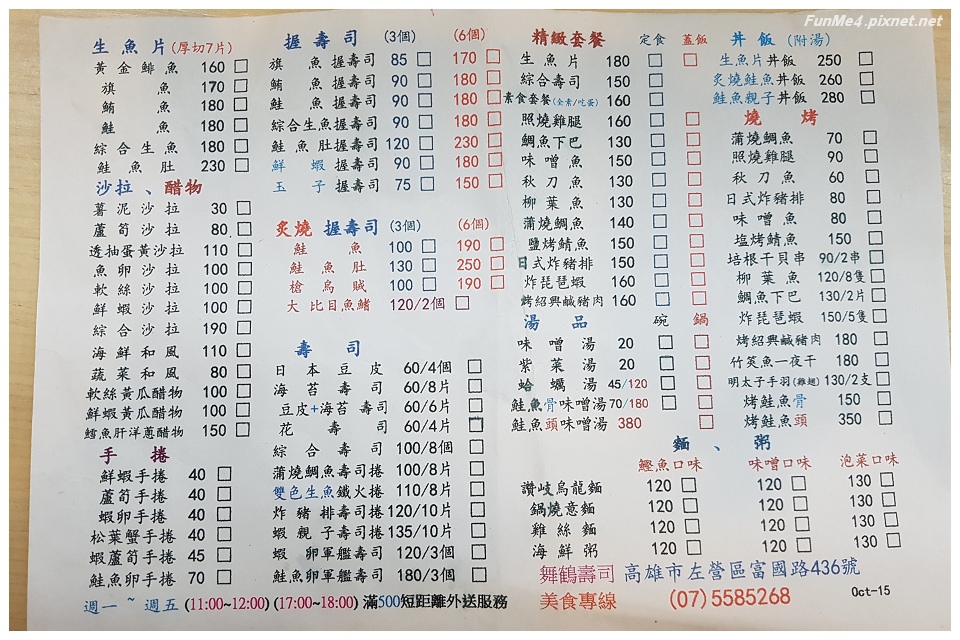 FunMe4.pixnet.net
生魚片(厚切7片)
黃金鯡魚 160 □
旗魚 170 □
鮪魚 180 □
鮭魚 180 □
綜合生魚 180 □
鮭魚肚 230 □
沙拉、醋物
薯泥沙拉 30 □
蘆筍沙拉 80 □
透抽蛋黃沙拉 110 □
魚卵沙拉 100 □
軟絲沙拉 100 □
鮮蝦沙拉 100 □
綜合沙拉 190 □
海鮮和風 110 □
蔬菜和風 80 □
軟絲黃瓜醋物 100 □
鮮蝦黃瓜醋物 100 □
鱈魚肝洋蔥醋物 150 □
手捲
鮮蝦手捲 40 □
蘆筍手捲 40 □
蝦卵手捲 40 □
松葉蟹手捲 40 □
蝦蘆筍手捲 45 □
鮭魚卵手捲 70 □
握壽司 (3個) (6個)
旗魚握壽司 85 □ 170 □
鮪魚握壽司 90 □ 180 □
鮭魚握壽司 90 □ 180 □
綜合生魚握壽司 90 □ 180 □
鮭魚肚握壽司 120 □ 230 □
鮮蝦握壽司 90 □ 180 □
玉子握壽司 75 □ 150 □
炙燒握壽司 (3個) (6個)
鮭魚 100 □ 190 □
鮭魚肚 130 □ 250 □
槍烏賊 100 □ 190 □
大比目魚鰭 120/2個 □
壽司
日本豆皮 60/4個 □
海苔壽司 60/8個 □
豆皮+海苔壽司 60/6片 □
花壽司 60/4片 □
綜合壽司 100/8個 □
蒲燒鯛魚壽司捲 100/8片 □
雙色生魚鐵火捲 110/8片 □
炸豬排壽司捲 120/10片 □
蝦親子壽司捲 135/10片 □
蝦卵軍艦壽司 120/3個 □
鮭魚卵軍艦壽司 180/3個 □
精緻套餐 定食 蓋飯
生魚片 180 □ □
綜合壽司 150 □
素食套餐(全素/吃蛋) 160 □
照燒雞腿 160 □ □
鯛魚下巴 130 □ □
味噌魚 150 □ □
秋刀魚 130 □ □
柳葉魚 130 □ □
蒲燒鯛魚 140 □ □
鹽烤鯖魚 150 □ □
日式炸豬排 150 □ □
炸琵琶蝦 160 □ □
烤紹興鹹豬肉 160 □ □
湯品 碗 鍋
味噌湯 20 □ □
紫菜湯 20 □ □
蛤蠣湯 45/120 □ □
鮭魚骨味噌湯 70/180 □ □
鮭魚頭味噌湯 380 □
丼飯 (附湯)
生魚片丼飯 250 □
炙燒鮭魚丼飯 260 □
鮭魚親子丼飯 280 □
燒烤
蒲燒鯛魚 70 □
照燒雞腿 90 □
秋刀魚 60 □
日式炸豬排 80 □
味噌魚 80 □
塩烤鯖魚 150 □
培根干貝串 90/2串 □
柳葉魚 120/8隻 □
鯛魚下巴 130/2片 □
炸琵琶蝦 150/5隻 □
烤紹興鹹豬肉 180 □
竹筴魚一夜干 180 □
明太子手羽(雞翅) 130/2支 □
烤鮭魚骨 150 □
烤鮭魚頭 350 □
麵、粥
鰹魚口味 味噌口味 泡菜口味
讚岐烏龍麵 120 □ 120 □ 130 □
鍋燒意麵 120 □ 120 □ 130 □
雞絲麵 120 □ 120 □ 130 □
海鮮粥 120 □ 120 □ 130 □
舞鶴壽司 高雄市左營區富國路436號
週一 ~ 週五 (11:00~12:00) (17:00~18:00) 滿500短距離外送服務
美食專線 (07)5585268 Oct-15